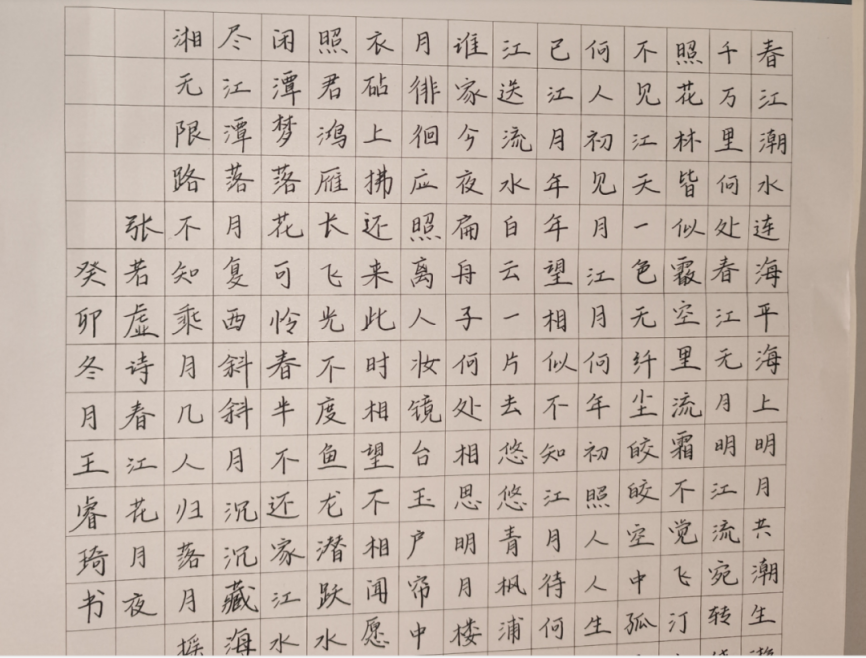 春江潮水连海平海上明月共潮生
千万里何处春江无月明江流宛转
照花林皆似霰空里流霜不觉飞汀
不见江天一色无纤尘皎皎空中孤
何人初见月江月何年初照人人生
已江月年年望相似不知江月待何
江送流水白云一片去悠悠青枫浦
谁家今夜扁舟子何处相思明月楼
月徘徊应照离人妆镜台玉户帘中
衣砧上拂还来此时相望不相闻愿
照君鸿雁长飞光不度鱼龙潜跃水
闲潭梦落花可怜春半不还家江水
尽江潭落月复西斜斜月沉沉藏海
湘无限路不知乘月几人归落月摇
张若虚诗春江花月夜
癸卯冬月王睿琦书